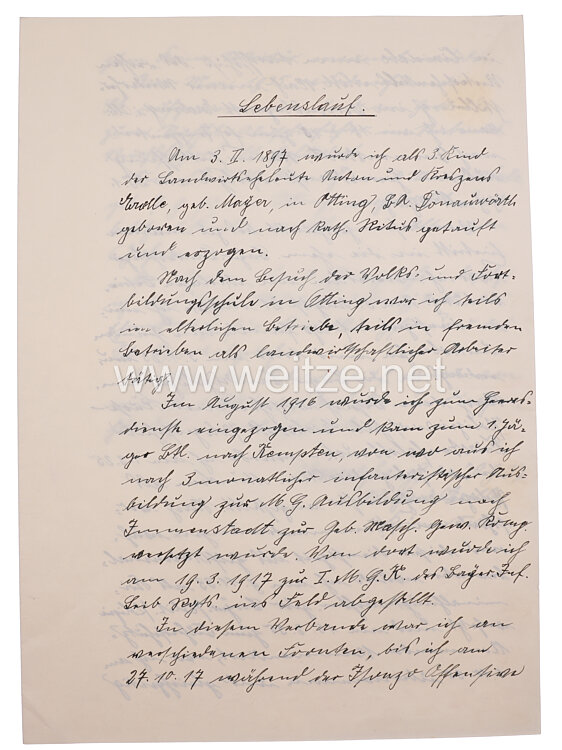 Lebenslauf.
Am 3. II. 1897 wurde ich als 3. Kind
der Landwirtseheleute Anton und Kreszens
geb. Mayer, in Otting, B.A. Donauwörth
geboren und nach kath. Ritus getauft
und erzogen.
Nach dem Besuch der Volks- und Fort-
bildungsschule in Otting war ich teils
im elterlichen Betriebe, teils in fremden
Betrieben als landwirtschaftlicher Arbeiter
tätig.
www.weitze.net
Im August 1916 wurde ich zum Heeres-
dienste eingezogen und kam zum 1. Jä-
ger Btl. nach Kempten, von wo aus ich
nach 3 monatlicher infanteristischer Aus-
bildung zur M.G. Ausbildung nach
Immenstadt zur Geb. Masch. Gew. Komp.
versetzt wurde. Von dort wurde ich
am 19.3.1917 zur I. M.G.K. des Bayer. Inf.
Leib Rgts. ins Feld abgestellt.
In diesem Verbande war ich an
verschiedenen Fronten, bis ich am
27.10.17 während der Isonzo Offensive